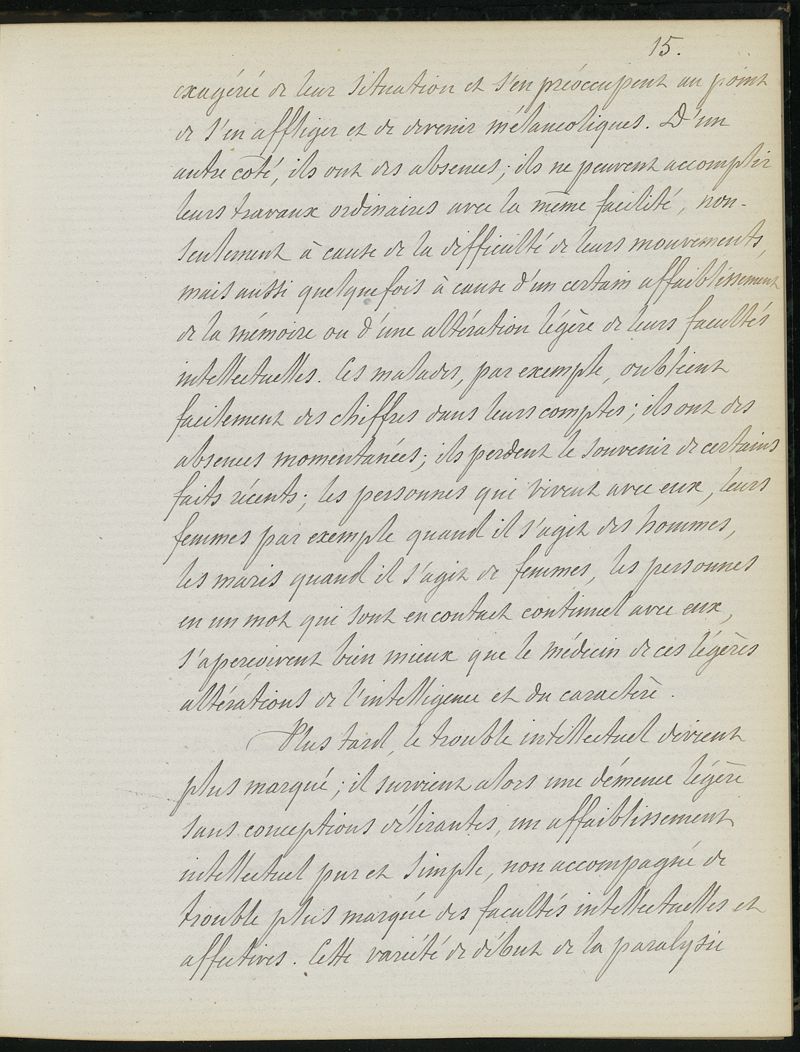 15.
exagérée de leur situation et s'en préoccupent au point
de s'en affliger et de devenir mélancoliques. D'un
autre côté, ils ont des absences; ils ne peuvent accomplir
leurs travaux ordinaires avec la même facilité, non-
seulement à cause de la difficulté de leurs mouvements,
mais aussi quelquefois à cause d'un certain affaiblissement
de la mémoire ou d'une altération légère de leurs facultés
intellectuelles. Ces malades, par exemple, oublient
facilement des chiffres dans leurs comptes; ils ont des
absences momentanées; ils perdent le souvenir de certains
faits récents; les personnes qui vivent avec eux, leurs
femmes par exemple quand il s'agit des hommes,
les maris quand il s'agit de femmes, les personnes
en un mot qui sont en contact continuel avec eux,
s'aperçoivent bien mieux que le médecin de ces légères
altérations de l'intelligence et du caractère.
Plus tard, le trouble intellectuel devient
plus marqué; il survient alors une démence légère
sans conceptions délirantes, un affaiblissement
intellectuel pur et simple, non accompagné de
trouble plus marqué des facultés intellectuelles et
affectives. Cette variété de début de la paralysie